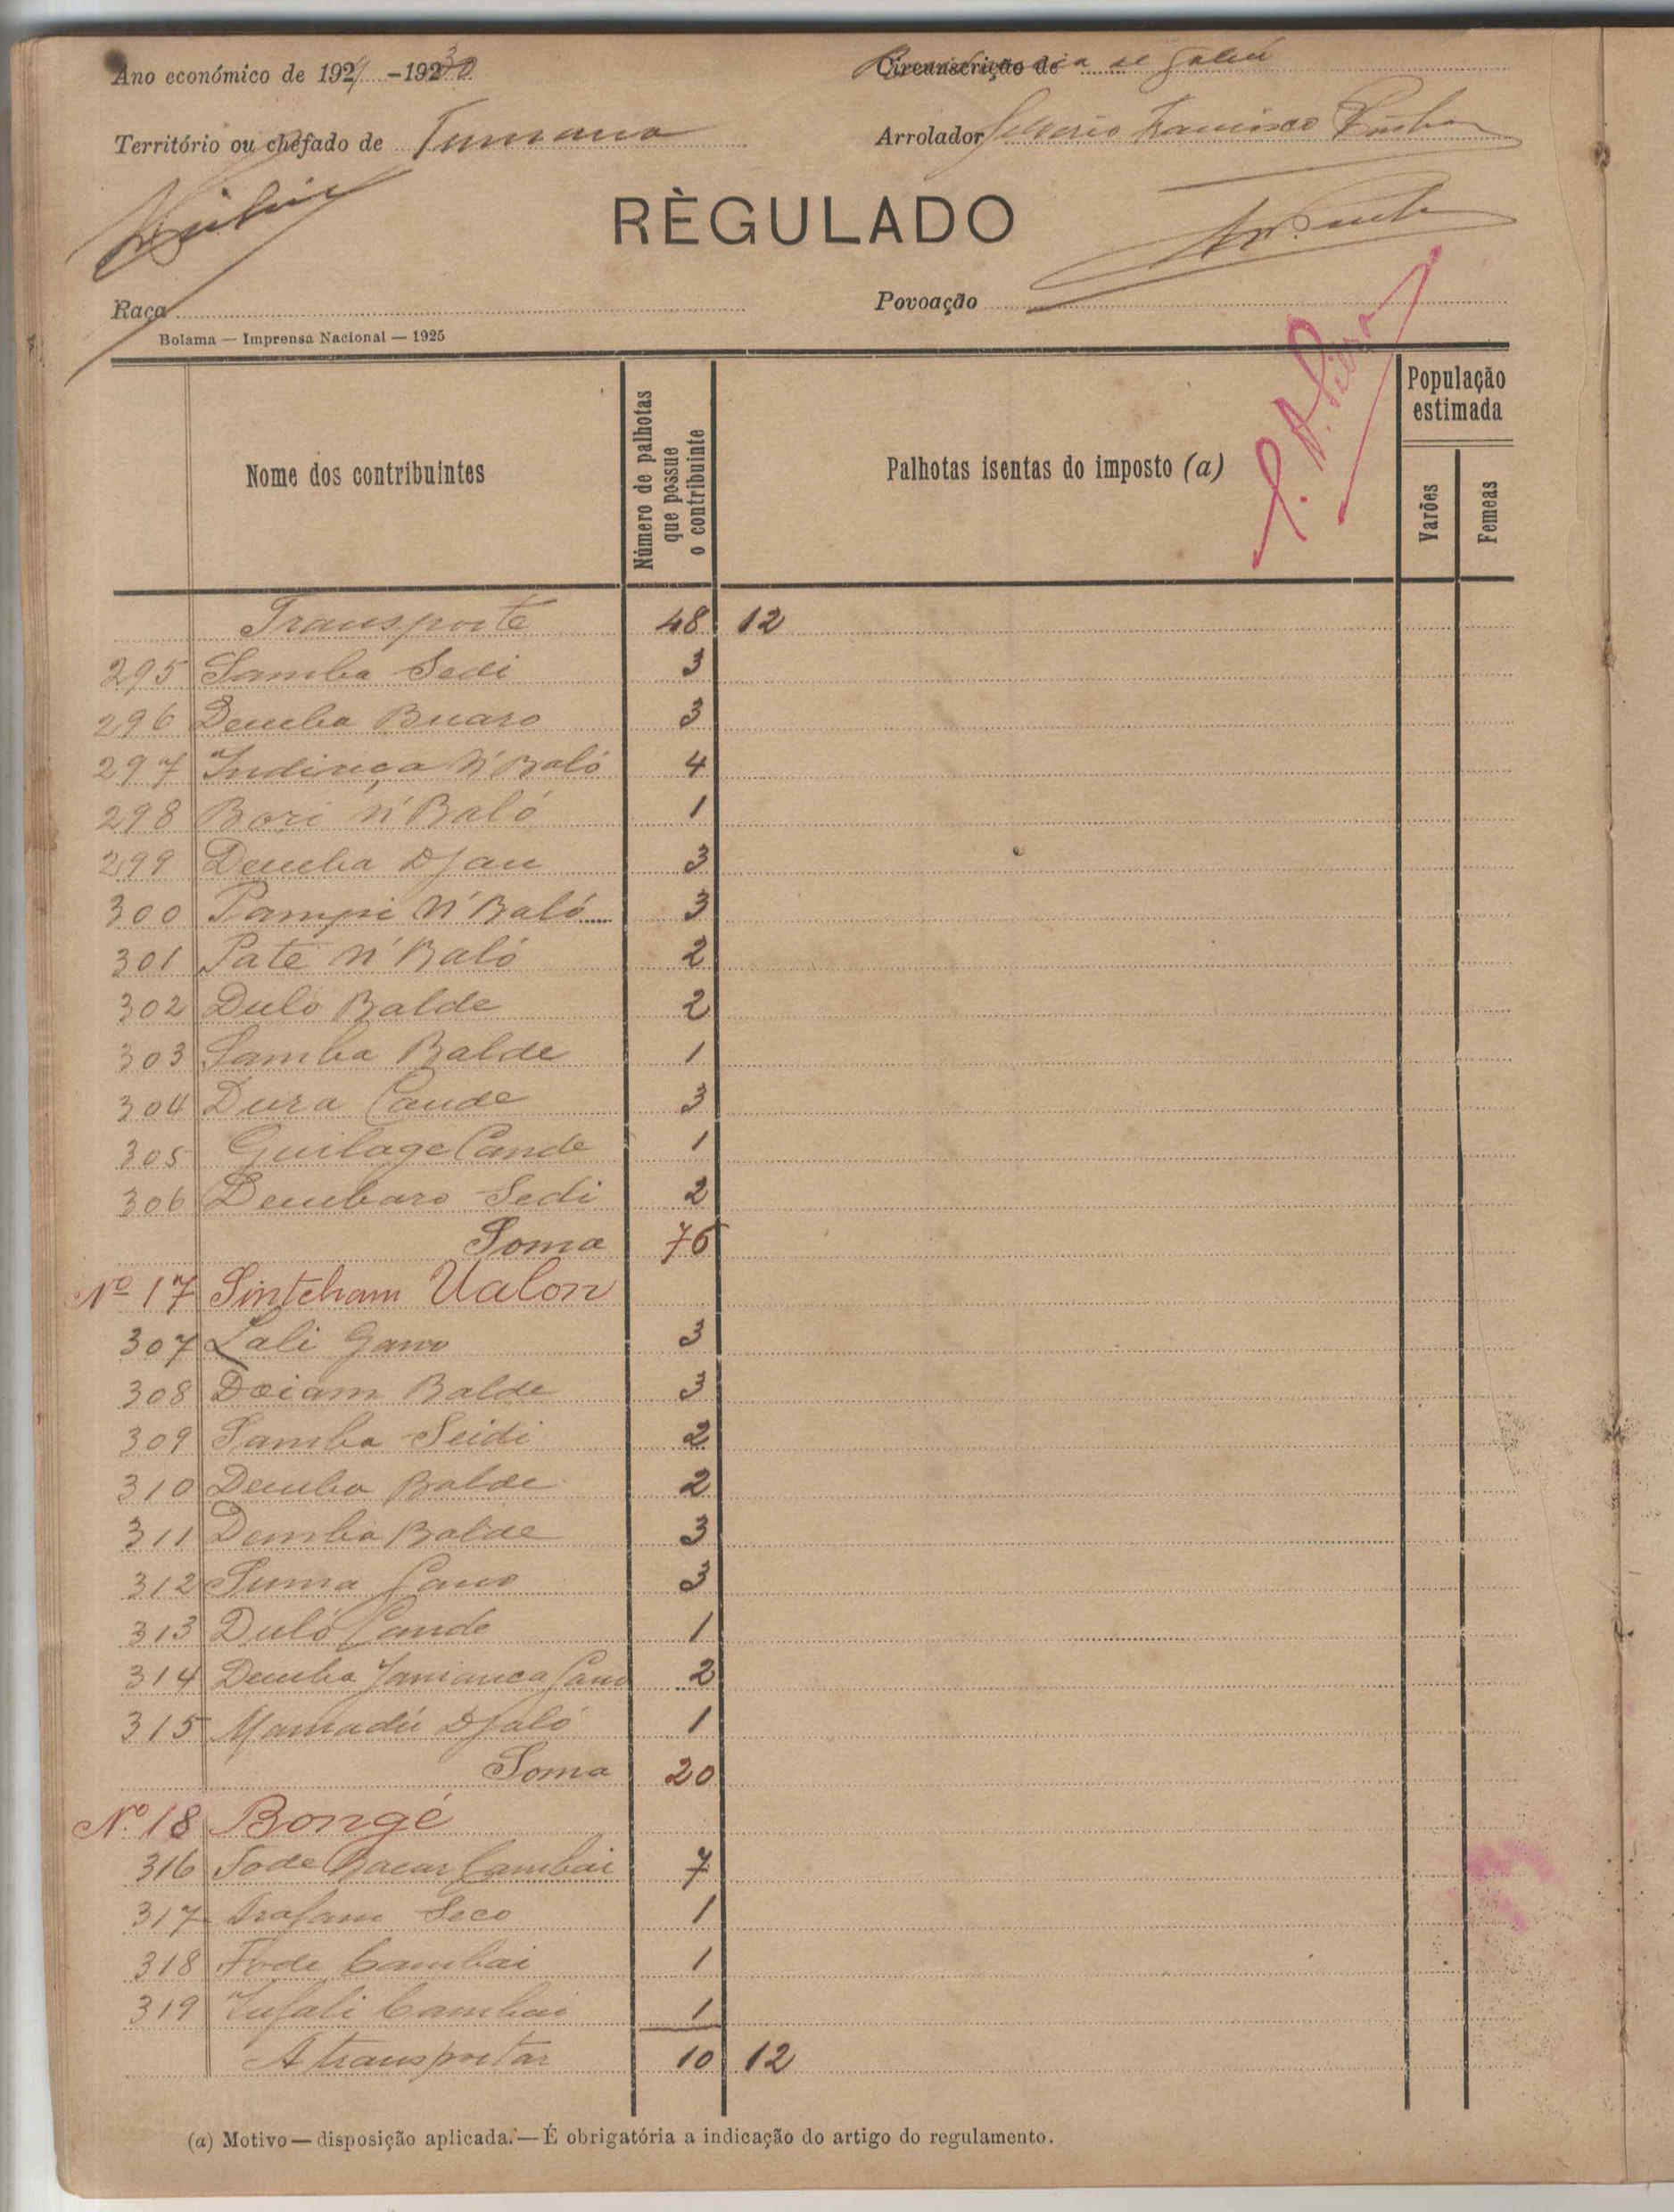 Ano económico de 1929-1930
Circunscrição de
Território ou chefado de Tumana
Arrolador Francisco
RÈGULADO
Raça
Povoação
Bolama — Imprensa Nacional — 1925
Nome dos contribuintes
Número de palhotas que possue o contribuinte
Palhotas isentas do imposto (a)
População estimada
Varões
Femeas
Transporte 48 12
295 Samba Sedi 3
296 Demba Buaro 3
297 N'Baló 4
298 Bori N'Baló 1
299 Demba Djau 3
300 Pampi N'Baló 3
301 Paté N'Baló 2
302 Duló Balde 2
303 Samba Balde 1
304 Dura Cande 3
305 Guilage Cande 1
306 Dembaro Sedi 2
Soma 76
Nº 17 Sintcham Ualon
307 Lali Gano 3
308 Balde 3
309 Samba Seidi 2
310 Demba Balde 2
311 Demba Balde 3
312 Suma 3
313 Duló Cande 1
314 Demba 2
315 Mamadú Djaló 1
Soma 20
Nº 18 Bongé
316 Fode Bacar Cambai 7
317 Seco 1
318 Fode Cambai 1
319 Cambai 1
A transportar 10 12
(a) Motivo — disposição aplicada. — É obrigatória a indicação do artigo do regulamento.